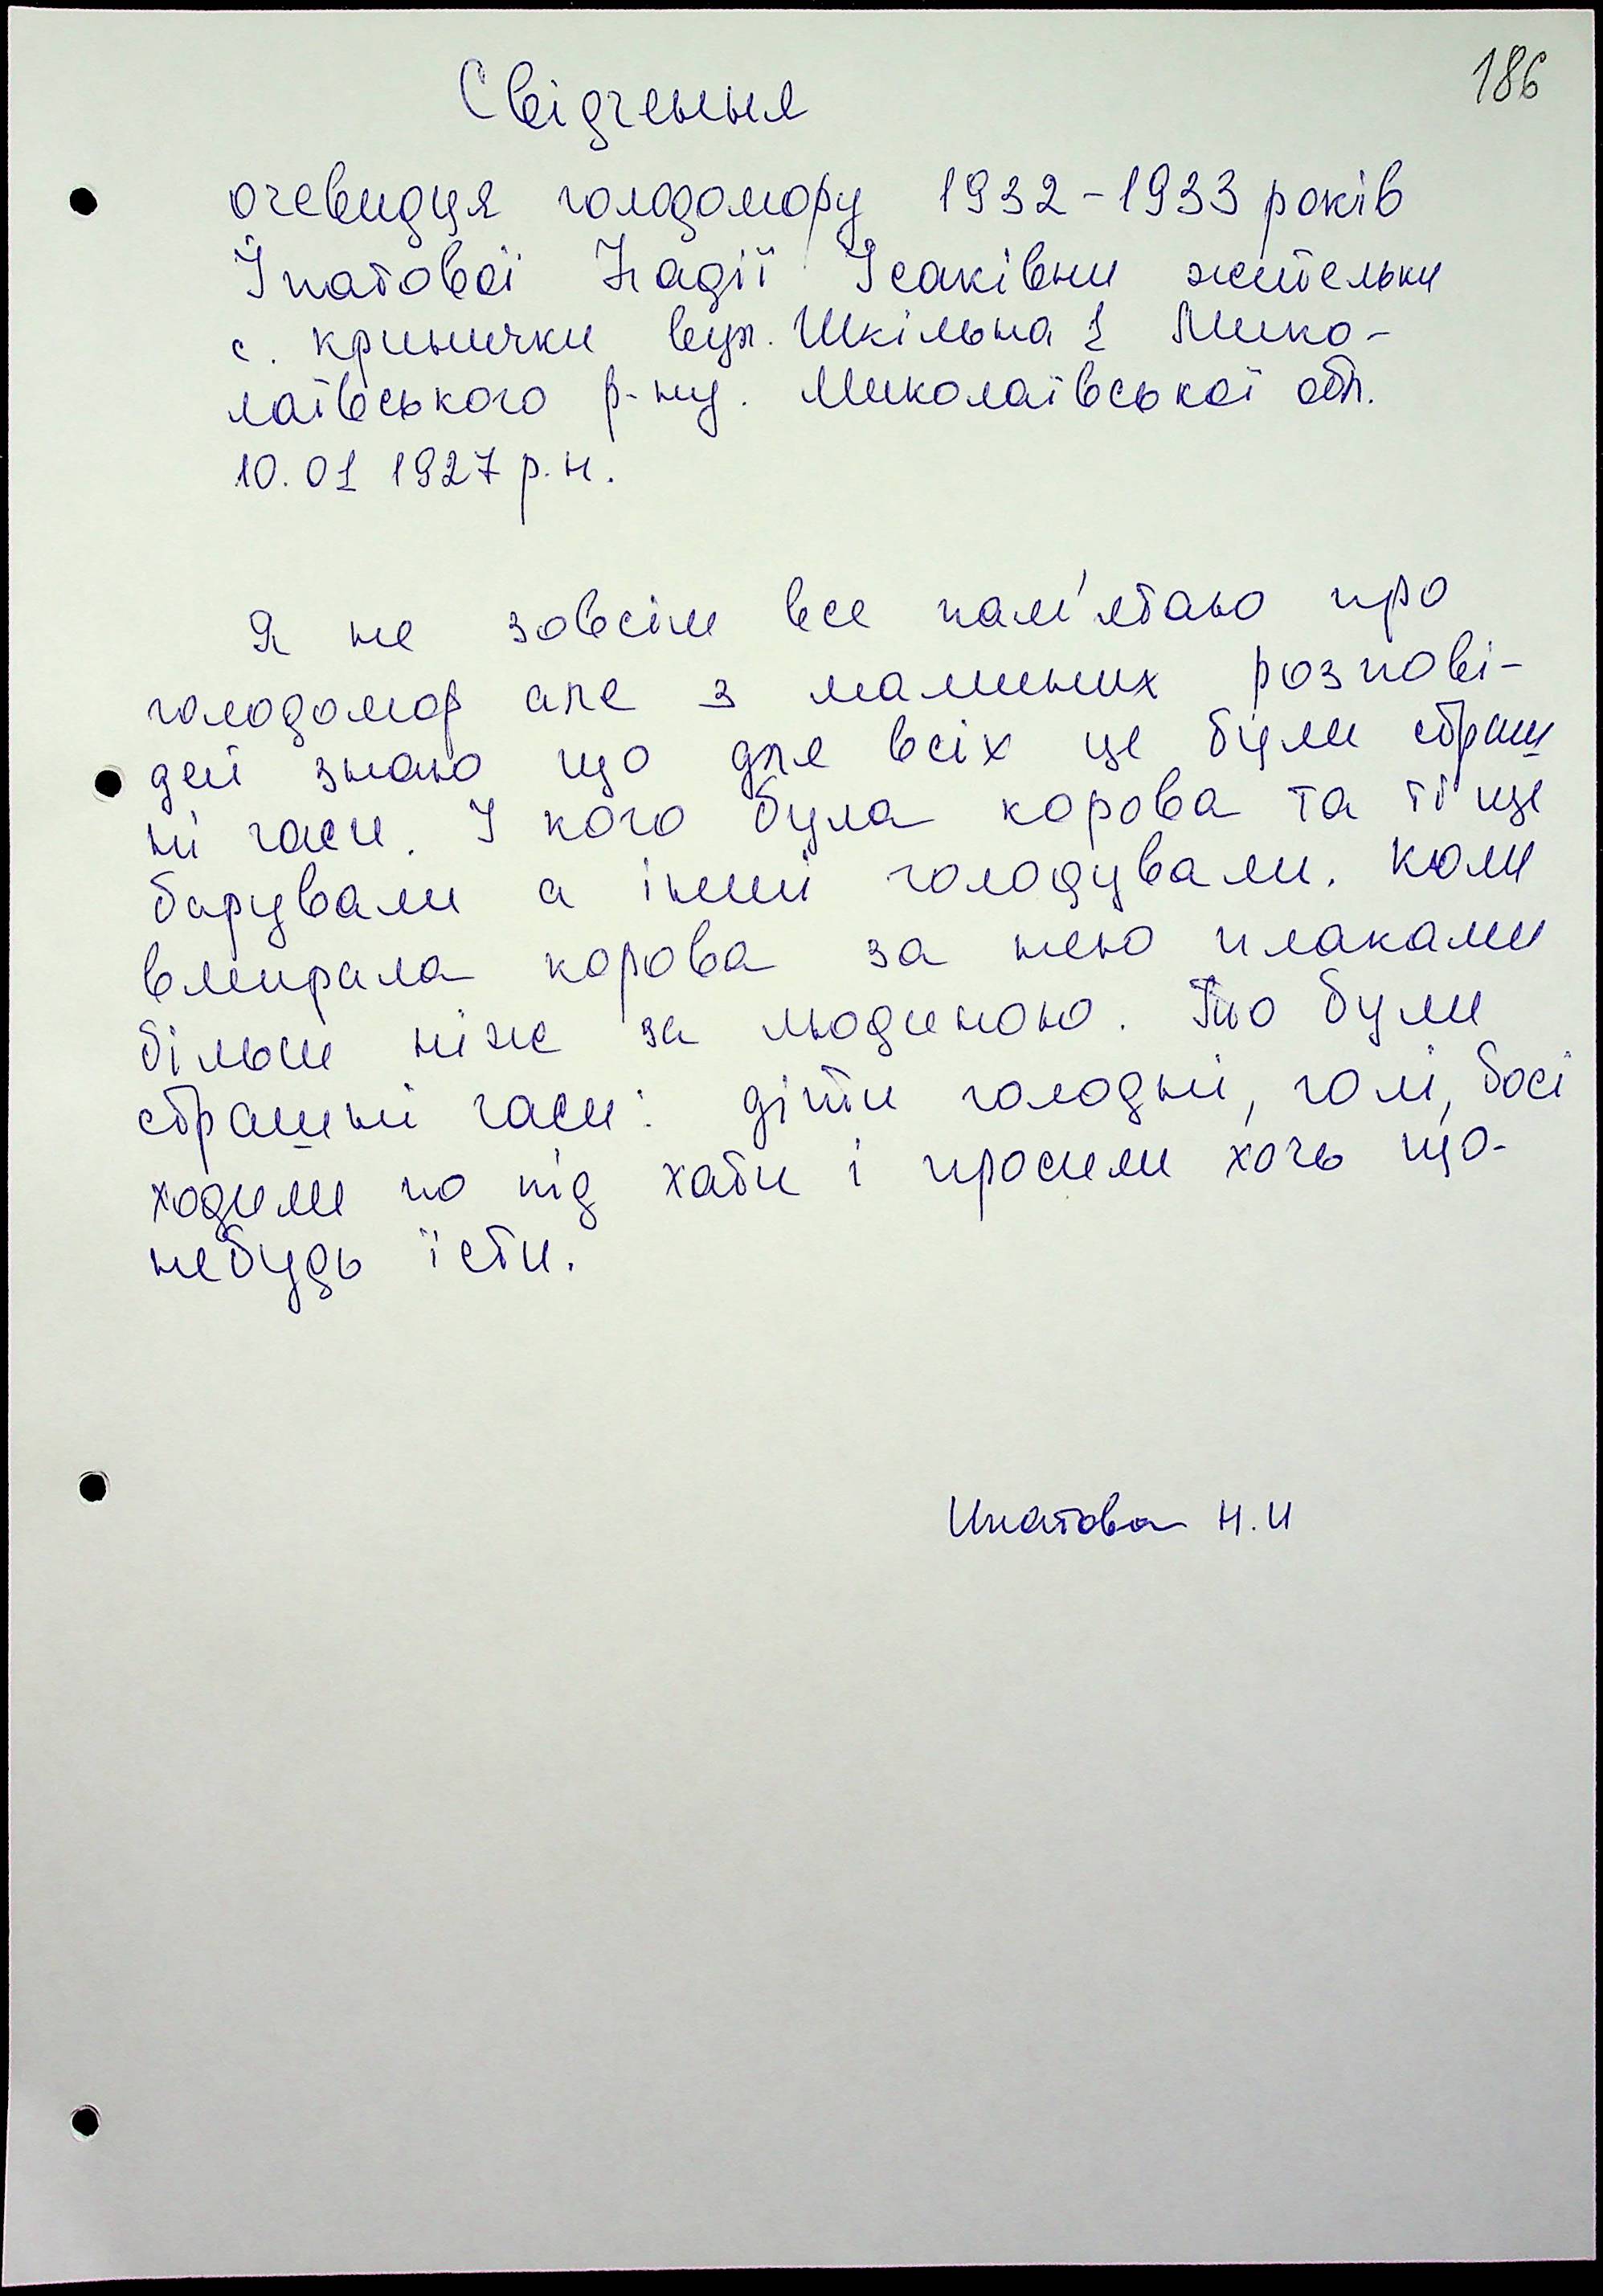 186
Свідчення
очевидця голодомору 1932-1933 років
Іпатової Надії Ісаківни жительки
с. кринички вул. Шкільна 1 Мико-
лаївського р-ну. Миколаївської обл.
10.01 1927 р.н.
Я не зовсім все пам'ятаю про
голодомор але з маминих розпові-
дей знаю що для всіх це були страш
ні часи. У кого була корова та ті ще
барували а інші голодували. Коли
вмирала корова за нею плакали
більш ніж за людиною. То були
страшні часи: діти голодні, голі, босі
ходили по під хати і просили хочь що-
небудь їсти.
Ипатова Н.И